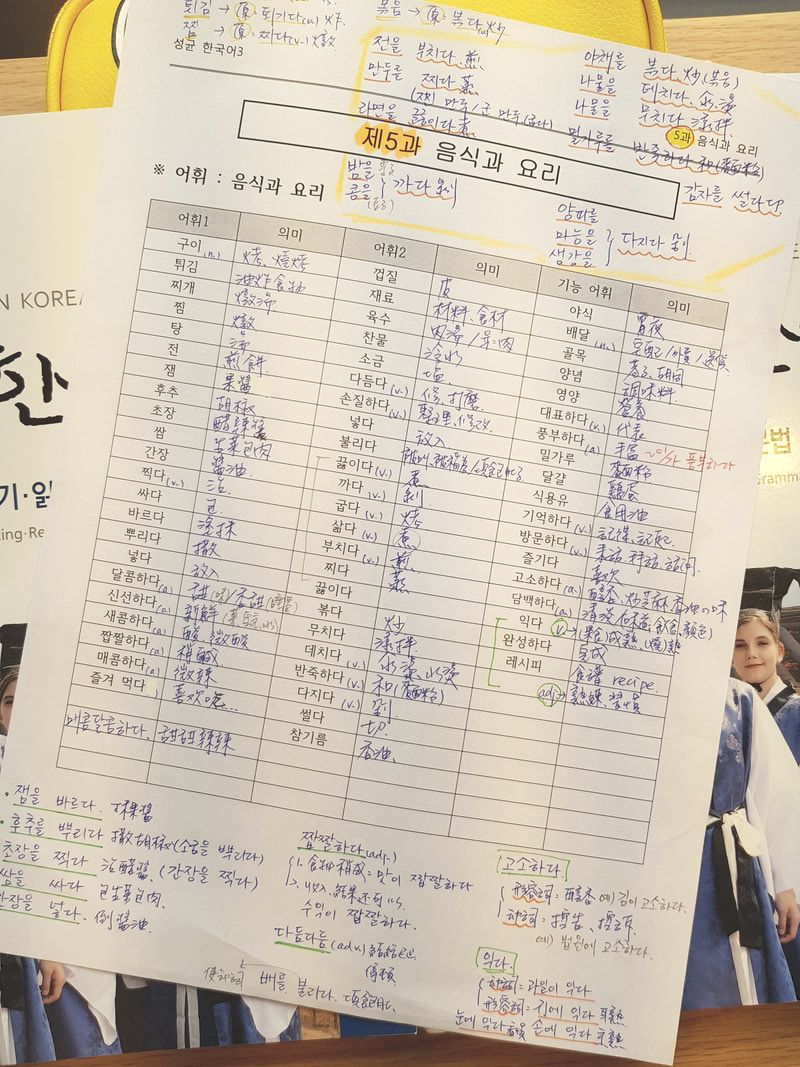 튀김 → 原: 튀기다(v.) 炸
찜 → 原: 찌다(v.) 燉
볶음 → 原: 볶다 炒
성균 한국어3
전을 부치다. 煎
만두를 찌다 蒸
(찐 만두/군 만두(굽다)
라면을 끓이다 煮
야채를 볶다. 炒(볶음)
나물을 데치다. 氽燙
나물을 무치다 涼拌
밀가루를 반죽하다 和(麵粉)
5과 음식과 요리
제5과 음식과 요리
밤을
콩을
까다 剝
감자를 썰다 切
양파를
마늘을
생강을
다지다 剁.
※ 어휘 : 음식과 요리
어휘1 의미 어휘2 의미 기능 어휘 의미
구이(n.) 烤、燒烤 껍질 皮 야식 宵夜
튀김 油炸食物 재료 材料、食材 배달(n.) 宅配/外賣
찌개 燉湯 육수 肉湯 골목 巷子、胡同
찜 燉 찬물 冷水 양념 調味料
탕 湯 소금 塩 영양 營養
전 煎餅 다듬다(v.) 修、打磨 대표하다(v.) 代表
잼 果醬 손질하다(v.) 整理、修改 풍부하다(a) 丰富 ~이/가 풍부하다
후추 胡椒 넣다 放入 밀가루 麵粉
초장 醋辣醬 불리다 달걀 鷄蛋
쌈 生菜包肉 끓이다(v.) 煮 식용유 食用油
간장 醬油 까다(v.) 剝 기억하다(v.) 記得、記起
찍다(v.) 沾 굽다(v.) 烤 방문하다(v.) 訪問
싸다 包 삶다(v.) 煮 즐기다 喜欢
바르다 塗抹 부치다(v.) 煎 고소하다(a.)
뿌리다 撒 찌다 蒸 담백하다(a)
넣다 放入 끓이다 익다 (v.)
달콤하다(a) 甜 볶다 炒 완성하다 完成
신선하다(a) 新鮮 무치다 涼拌 레시피 食譜 recipe.
새콤하다(a) 酸、微酸 데치다(v.) 氽燙、水燙 adj→ 熟練、習慣
짭짤하다(a) 稍鹹 반죽하다(v.) 和(麵粉)
매콤하다(a) 微辣 다지다(v.) 剁
즐겨 먹다 喜欢吃... 썰다 切.
매콤달콤하다. 甜甜辣辣 참기름 香油
• 잼을 바르다. 抹果醬
• 후추를 뿌리다 撒胡椒(소금을 뿌리다)
초장을 찍다 沾醋醬. (간장을 찍다)
쌈을 싸다 包生菜包肉.
간장을 넣다. 倒醬油.
짭짤하다(adj.)
1. 食物稍咸 = 맛이 짭짤하다
수익이 짭짤하다.
다듬다듬(adv.)
使動詞 배를 불리다. 填飽肚子
고소하다.
形容詞 = 예) 김이 고소하다.
动詞 = 控告、
예) 법원에 고소하다.
익다.
动詞 = 과일이 익다
形容詞 = 귀에 익다 耳熟
눈에 익다 손에 익다 手熟